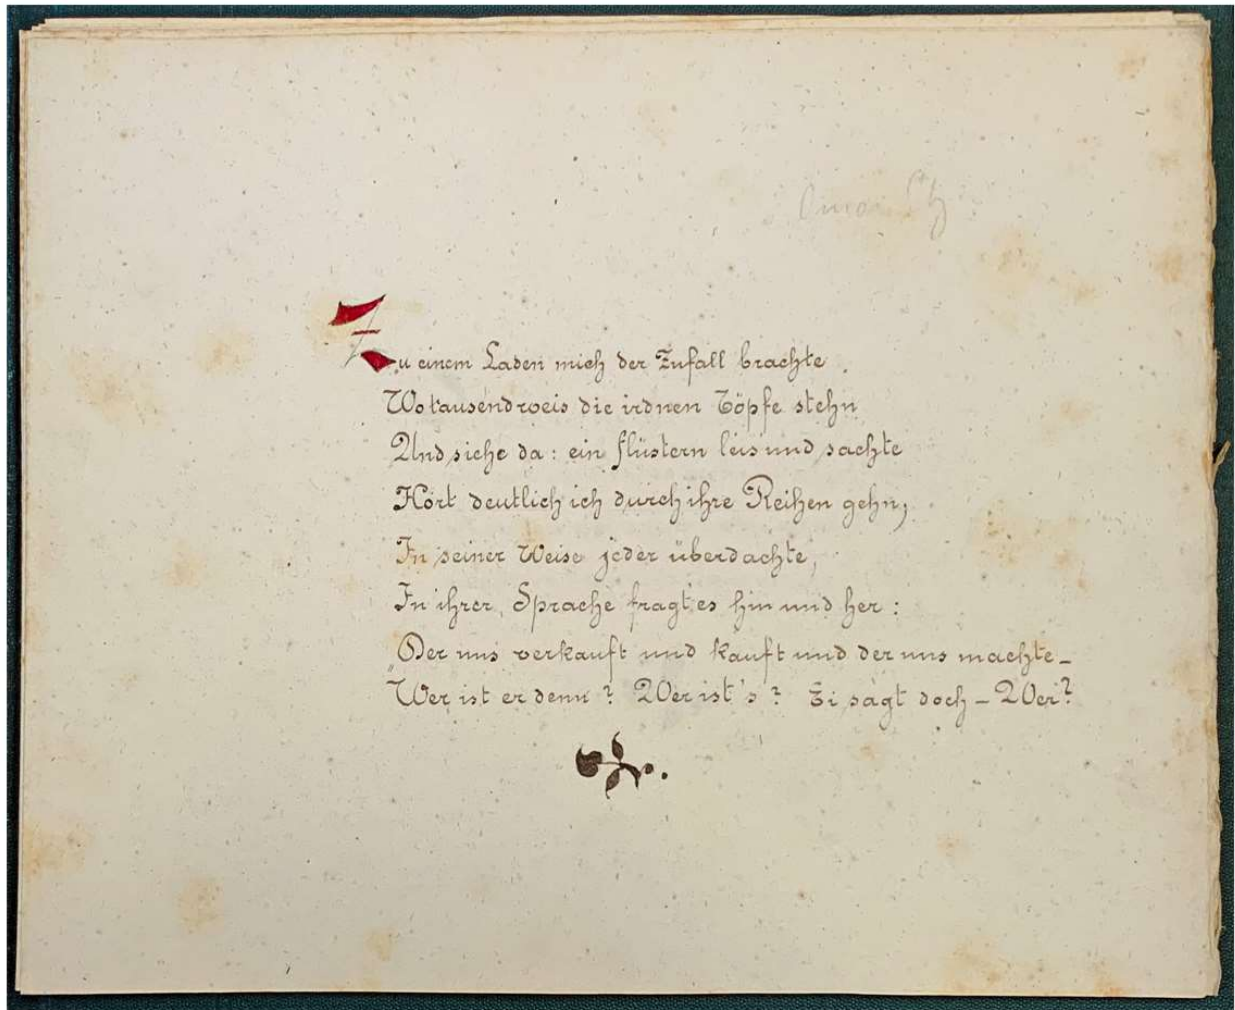 Zu einem Laden mich der Zufall brachte
Wo tausendweis die irdnen Töpfe stehn
Und siehe da: ein flüstern leis und sachte
Hört deutlich ich durch ihre Reihen gehn,
In seiner Weise jeder überdachte,
In ihrer Sprache fragt es hin und her:
„Der uns verkauft und kauft und der uns machte –
Wer ist er denn? Wer ist's? Ei sagt doch – Wer?